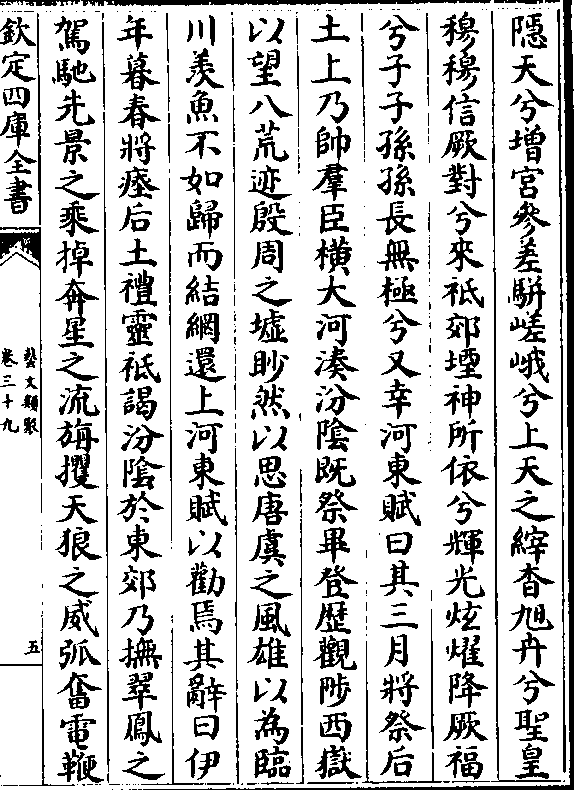 隱天兮增宮㕘差駢嵯峨兮上天之縡杳旭卉兮聖皇
穆穆信厥對兮來祗郊堙神所依兮輝光炫燿降厥福
兮子子孫孫長無極兮又幸河東賦曰其三月將祭后
土上乃帥羣臣横大河湊汾隂既祭畢登歴觀陟西嶽
以望八荒迹殷周之墟眇然以思唐虞之風雄以為臨
川羨魚不如歸而結網還上河東賦以勸焉其辭曰伊
年暮春將瘞后土禮靈祇謁汾隂於東郊乃撫翠鳳之
駕馳先景之乗掉奔星之流旃攫天狼之威弧奮電鞭
欽定四庫全書
藝文類聚
卷三十九
五